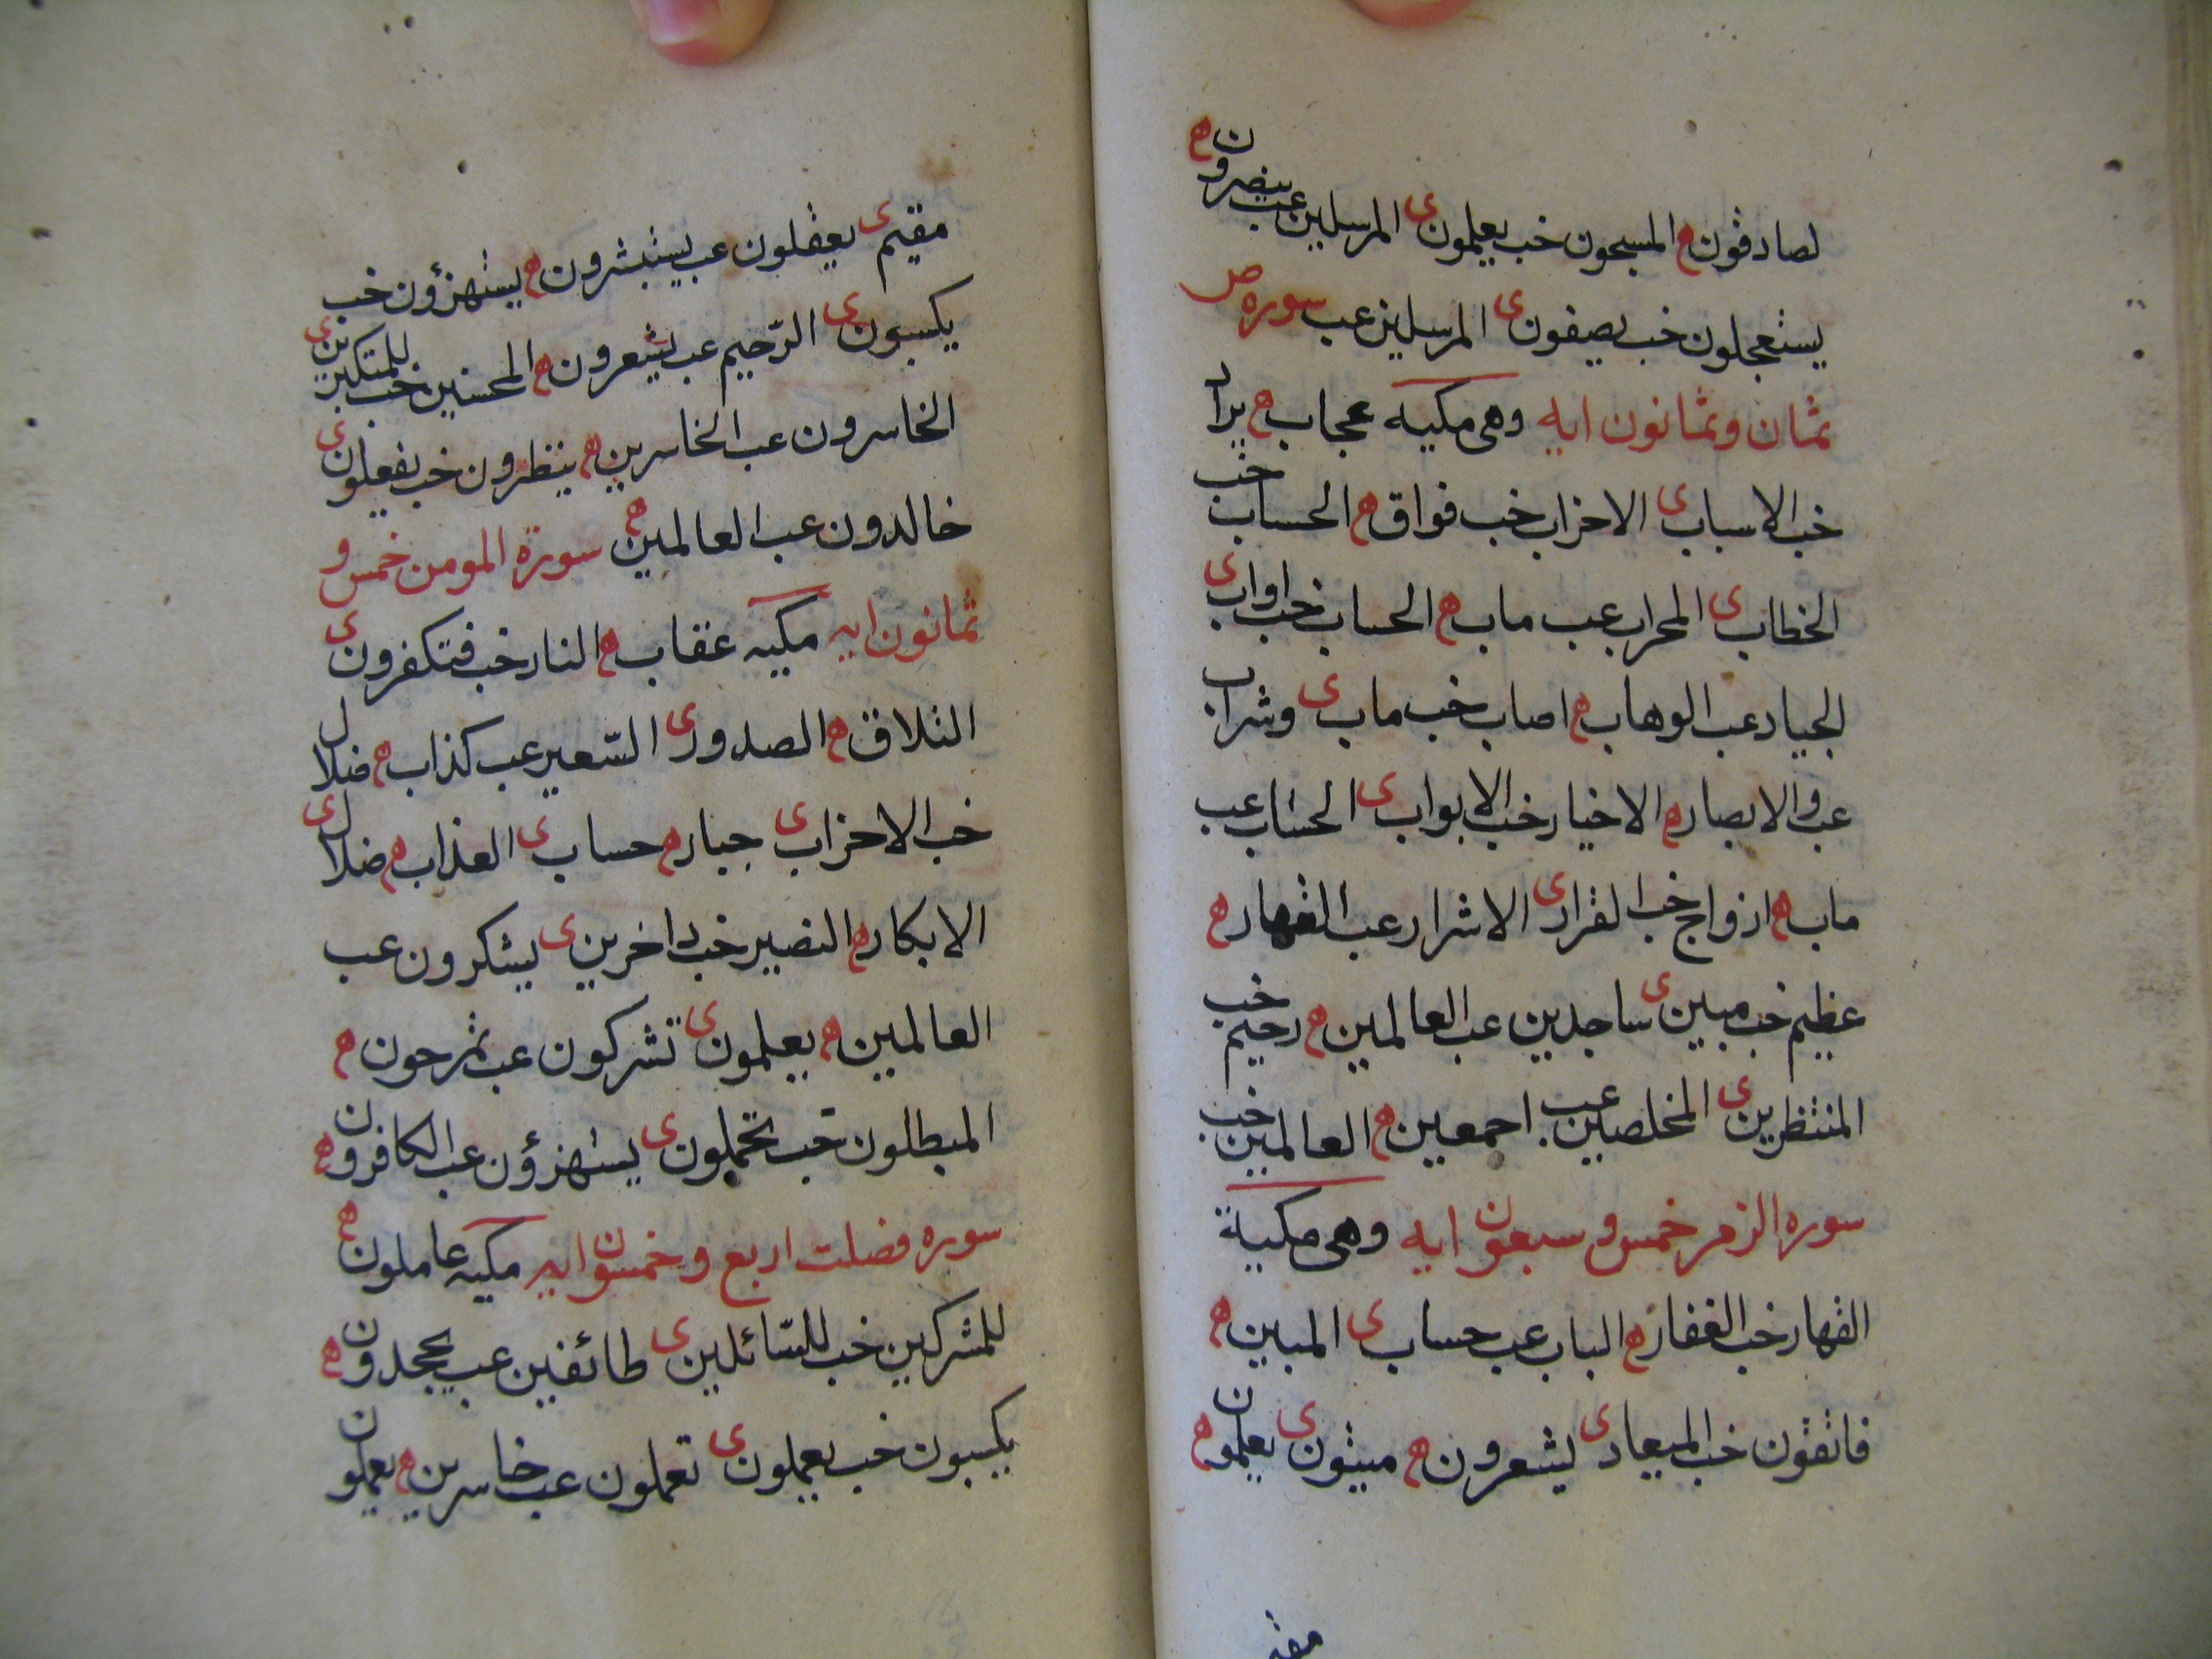 لصادقون ه المسبحون خب يعلمون ى المرسلين عب يبصرون ه
يستعجلون خب يصفون ى المرسلين عب سوره ص
ثمان وثمانون ايه وهى مكيه عجاب ه يراد
خب الاسباب ى الاحزاب خب فواق ه الحساب خب
الخطاب ى المحراب عب ماب ه الحساب خب اواب ى
الجياد عب الوهاب ه اصاب خب ماب ى وشراب
عب والابصار ه الاخيار خب الابواب ى الحساب عب
ماب ه ازواج خب القرار ى الاشرار عب القهار ه
عظيم خب مبين ى ساجدين عب العالمين ه رحيم خب
المنتظرين ى المخلصين عب اجمعين ه العالمين خب
سوره الزمر خمس و سبعون ايه وهى مكية
القهار خب الغفار ه الباب عب حساب ى المبين ه
فاتقون خب الميعاد ى يشعرون ه ميتون ى يعلمون ه
مقيم
مقيم ى يعقلون عب يستبشرون ه يستهزؤن خب
يكسبون ى الرّحيم عب يشعرون ه المحسنين خب للمتكبرين ى
الخاسرون عب الخاسرين ه ينظرون خب يفعلون ى
خالدون عب العالمين ه سورة المومن خمس و
ثمانون ايه مكيه عقاب ه النار خب فتكفرون ى
التلاق ه الصدور ى السّعير عب كذاب ه ضلال
خب الاحزاب ى جبار ه حساب ى العذاب ه ضلال ى
الابكار ه النصير خب داخرين ى يشكرون عب
العالمين ه يعلمون ى تشركون عب تمرحون ه
المبطلون خب تحملون ى يستهزؤن عب الكافرون ه
سوره فصلت اربع و خمسون ايه مكيه عاملون ه
للمشركين خب للسّائلين ى طائفين عب يجحدون ه
يكسبون خب يعملون ى تعملون عب خاسرين ه يعملون